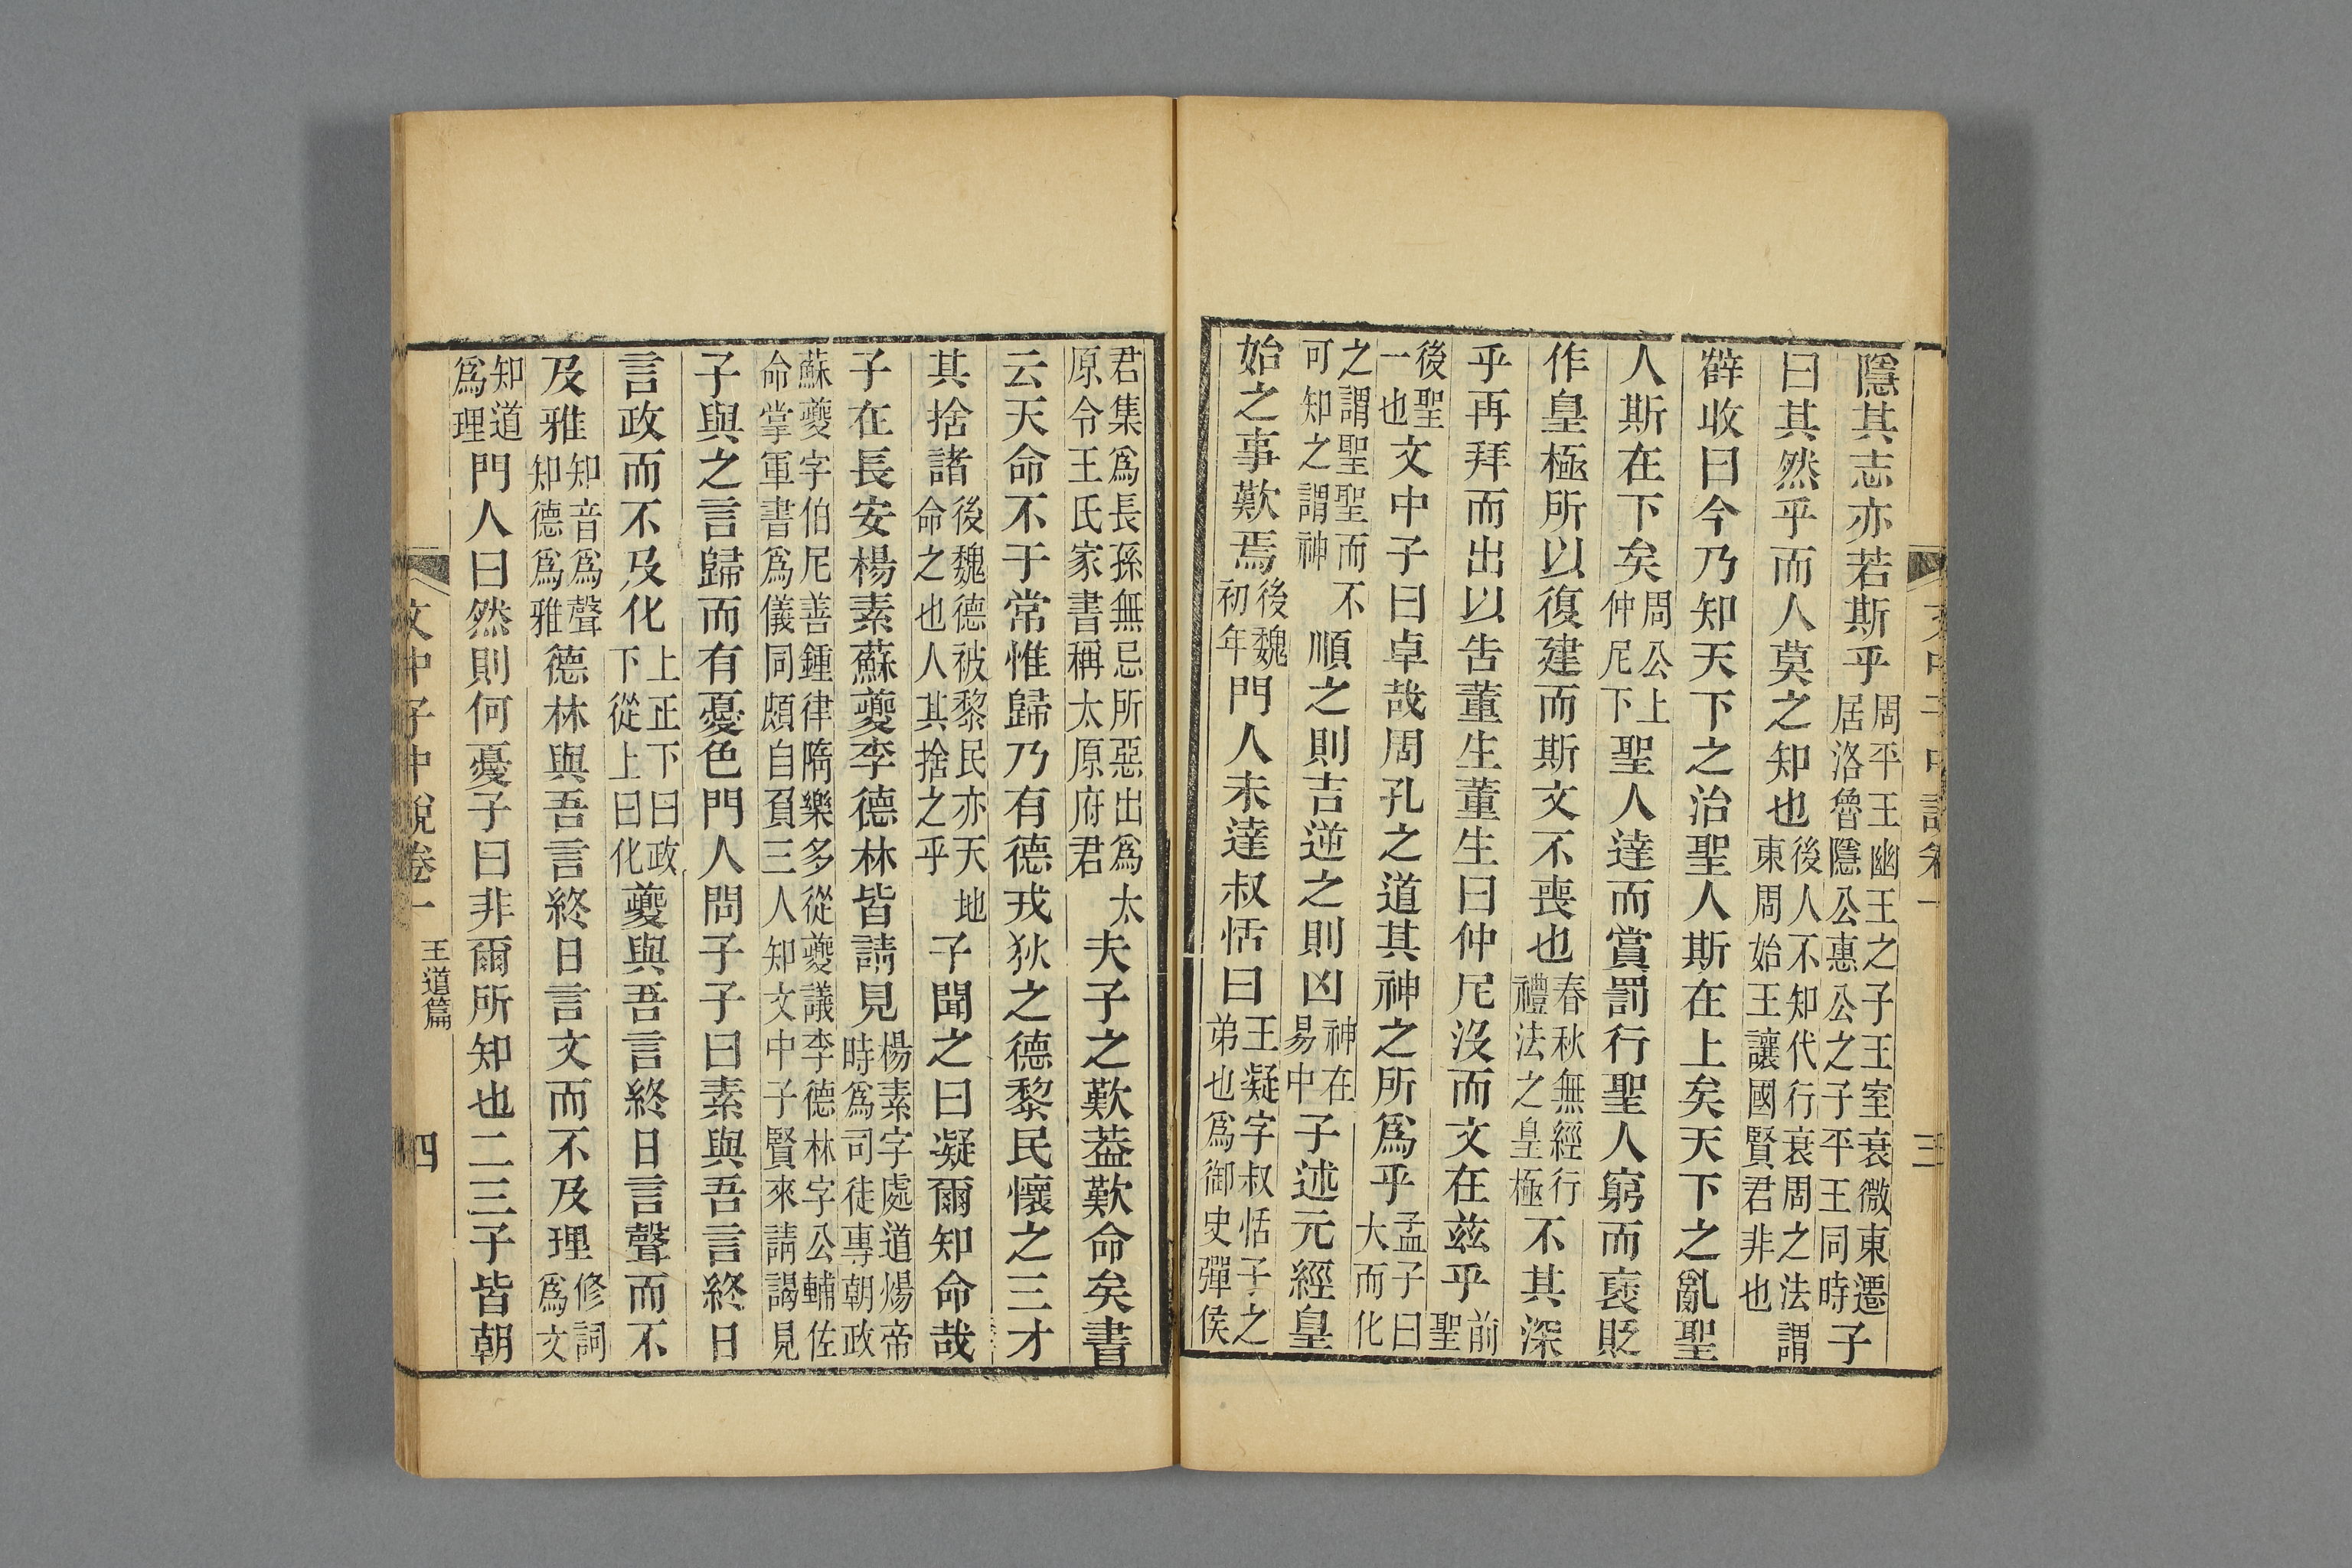 文中子中說卷一 三
隱其志亦若斯乎周平王幽王之子王室衰微東遷居洛魯隱公惠公之子平王同時子
曰其然乎而人莫之知也後人不知代行衰周之法謂東周始王讓國賢君非也
薛收曰今乃知天下之治聖人斯在上矣天下之亂聖
人斯在下矣周公上仲尼下聖人達而賞罰行聖人窮而褒貶
作皇極所以復建而斯文不喪也春秋無經行禮法之皇極不其深
乎再拜而出以告董生董生曰仲尼没而文在兹乎前聖
後聖一也文中子曰卓哉周孔之道其神之所爲乎孟子曰大而化
之謂聖聖而不可知之謂神順之則吉逆之則凶神在易中子述元經皇
始之事歎焉後魏初年門人未達叔恬曰王凝字叔恬子之弟也爲御史彈侯
君集爲長孫無忌所惡出爲太原令王氏家書稱太原府君夫子之歎葢歎命矣書
云天命不于常惟歸乃有德戎狄之德黎民懷之三才
其捨諸後魏德被黎民亦天地命之也人其捨之乎子聞之曰凝爾知命哉
子在長安楊素蘇夔李德林皆請見楊素字處道煬帝時爲司徒專朝政
蘇夔字伯尼善鍾律隋樂多從夔議李德林字公輔佐命掌軍書爲儀同頗自負三人知文中子賢來請謁見
子與之言歸而有憂色門人問子子曰素與吾言終日
言政而不及化上正下曰政下從上曰化夔與吾言終日言聲而不
及雅知音爲聲知德爲雅德林與吾言終日言文而不及理修詞爲文
知道爲理門人曰然則何憂子曰非爾所知也二三子皆朝
文中子中說卷一 王道篇 四